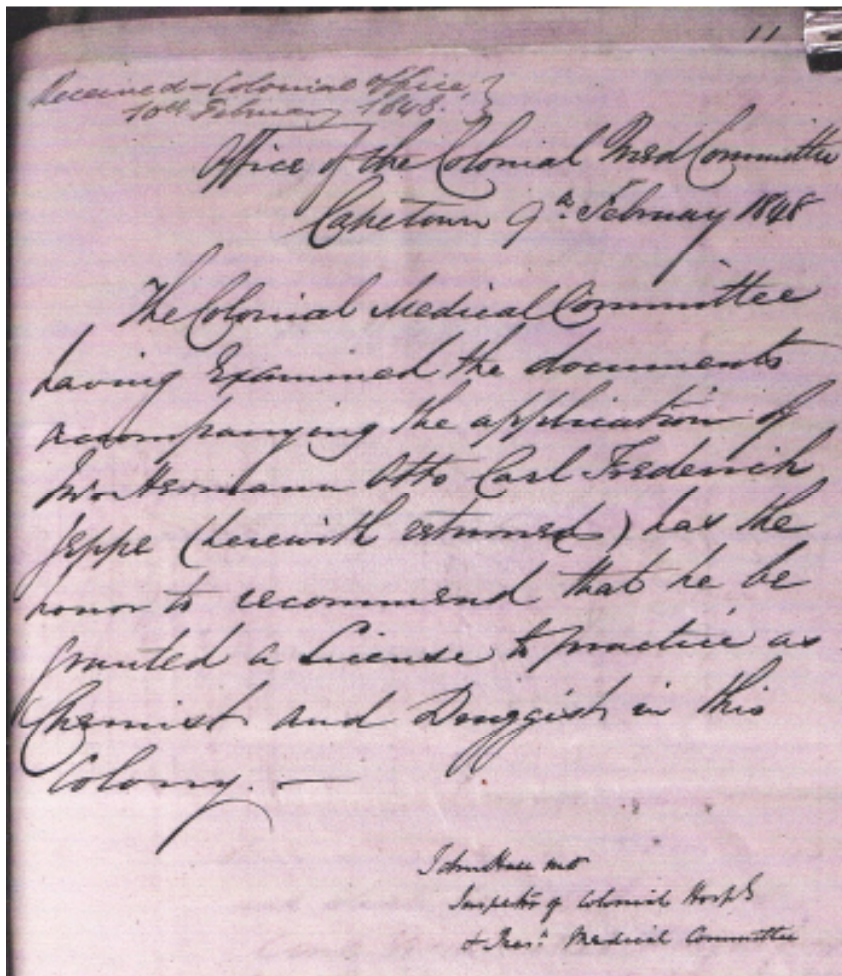 11
Received - Colonial Office }
10th February 1848. }
Office of the Colonial Med Committee
Capetown 9th February 1848
The Colonial Medical Committee
having Examined the documents
accompanying the application of
Hermann Otto Carl Frederick
Jeppe (herewith returned) has the
honor to recommend that he be
granted a License to practice as
Chemist and Druggist in this
Colony. —
John Hall MD
Inspector of Colonial Hospls
& Presdt Medical Committee